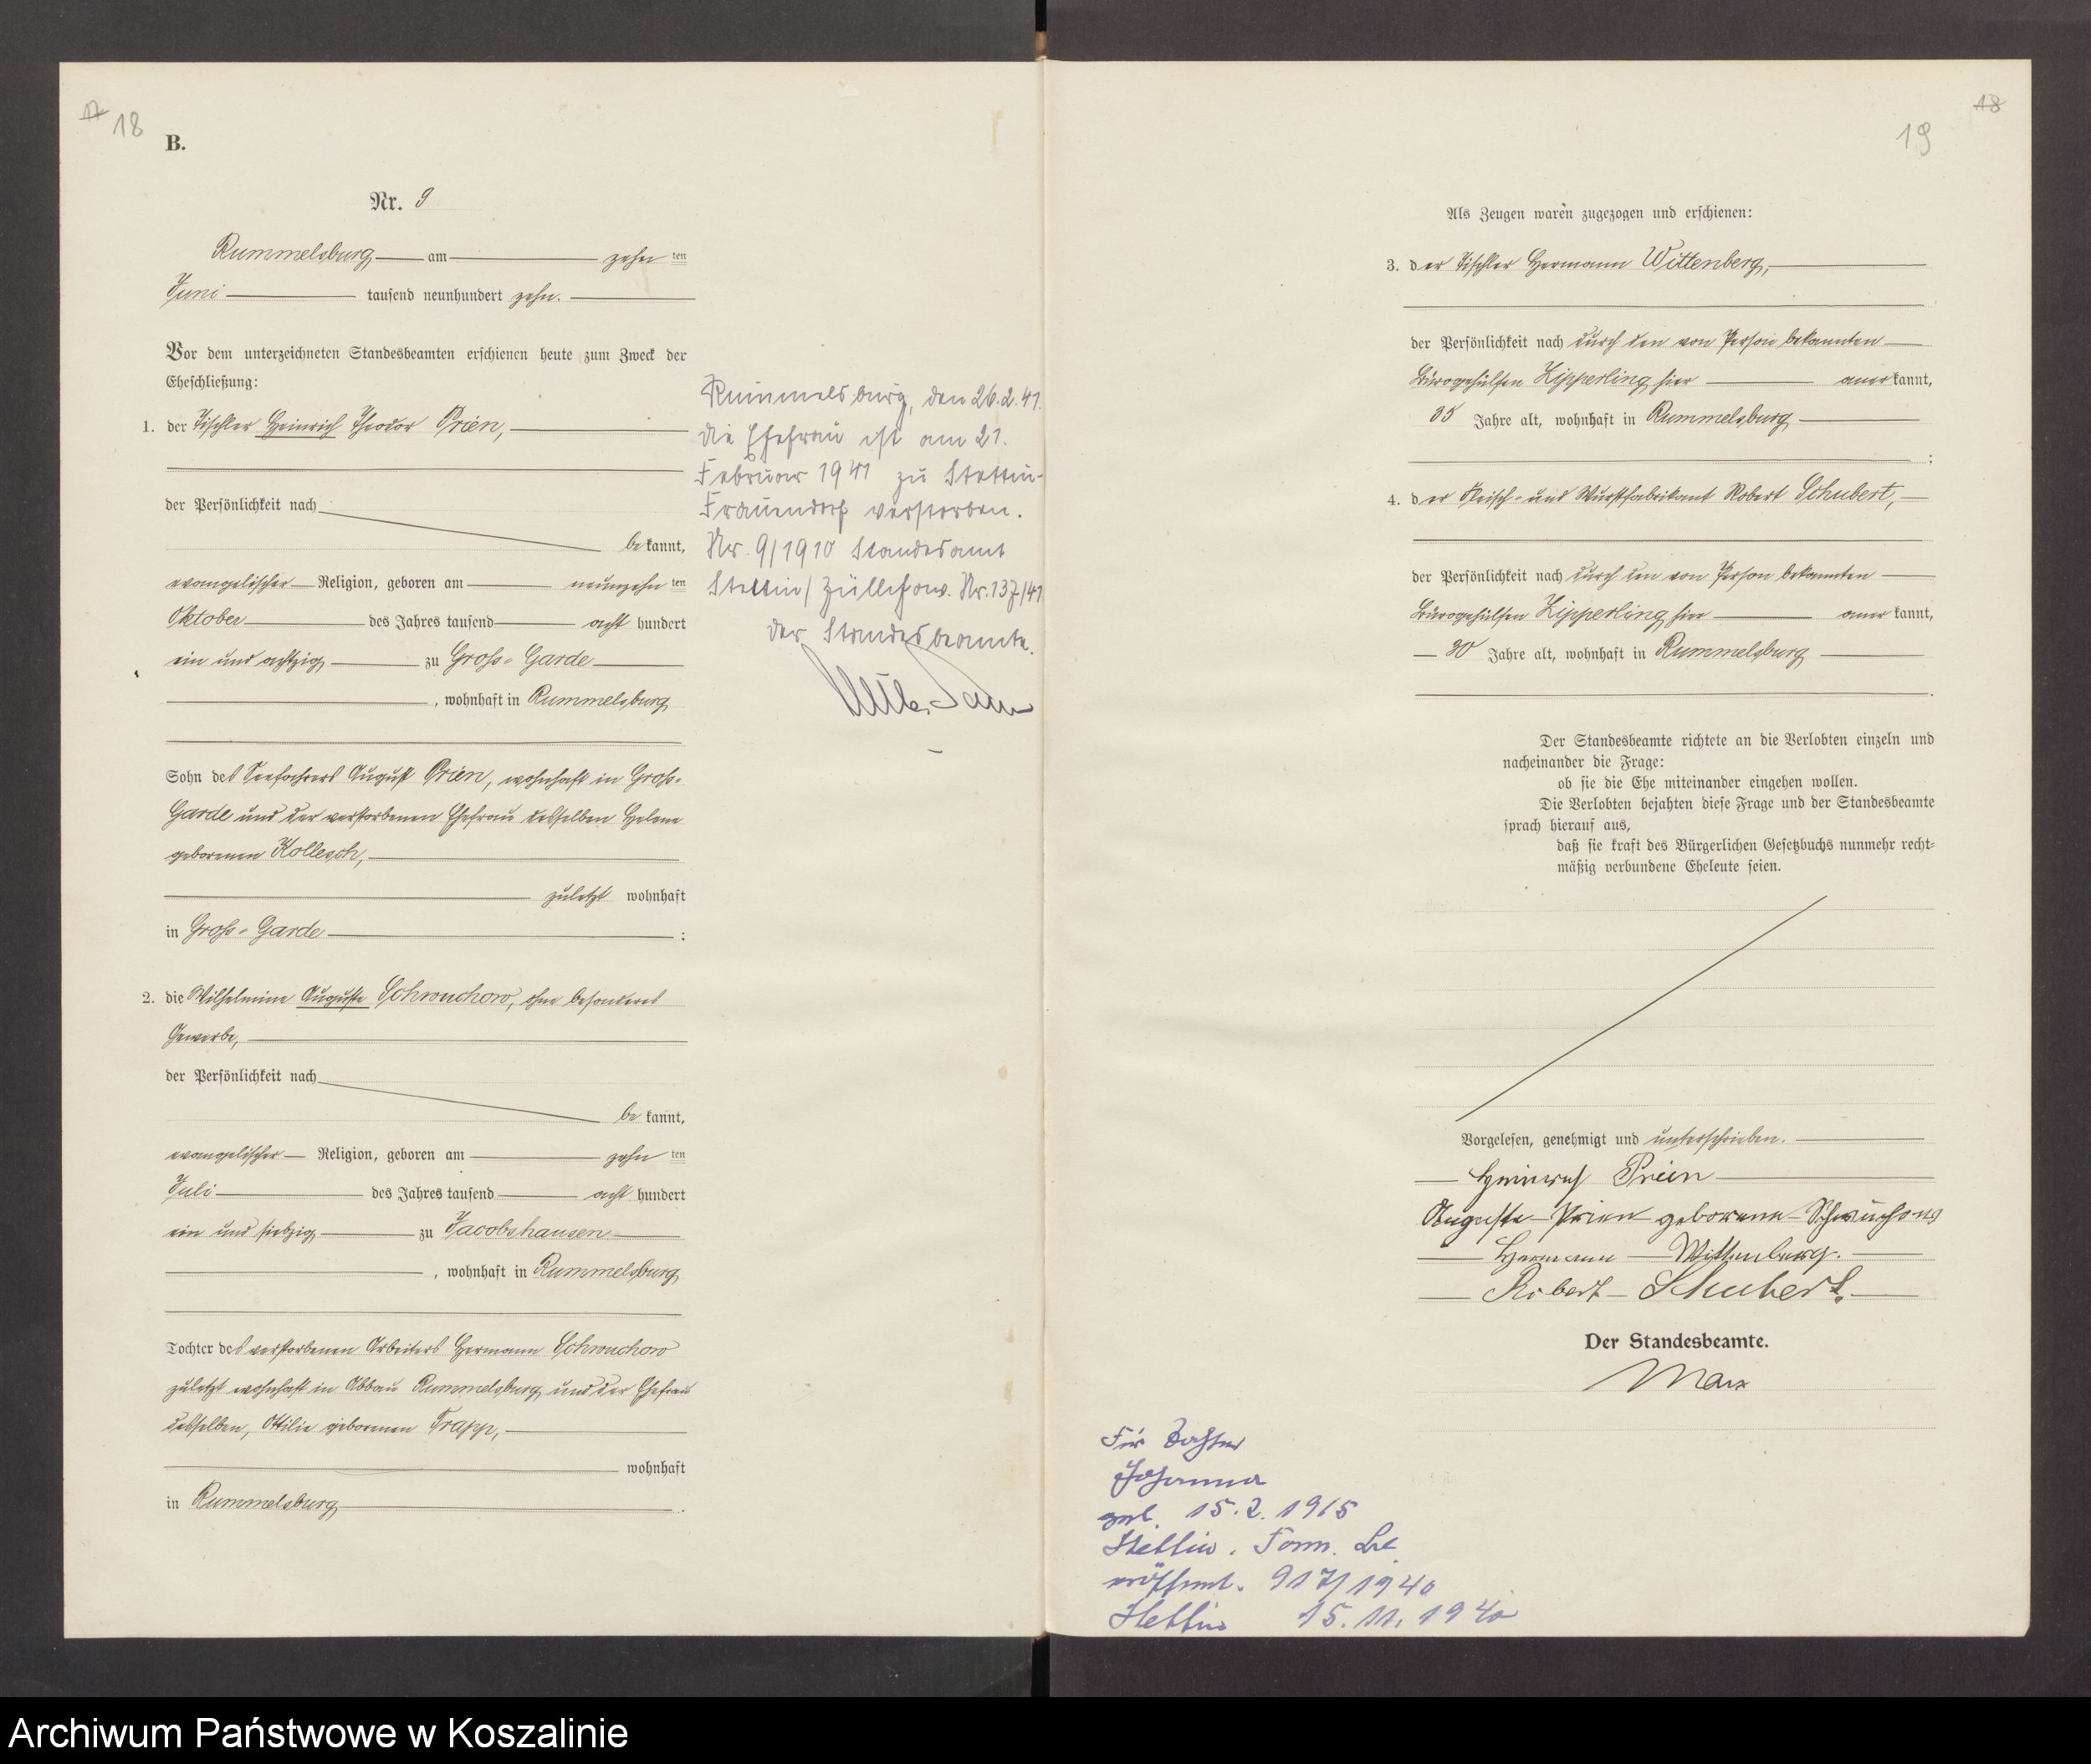 17
18
B.
Nr. 9
Rummelsburg am zehn ten
Juni tausend neunhundert zehn.
Vor dem unterzeichneten Standesbeamten erschienen heute zum Zweck der
Eheschließung:
1. der Tischler Heinrich Theodor Prien,
der Persönlichkeit nach
be kannt,
evangelischer Religion, geboren am neunzehn ten
Oktober des Jahres tausend acht hundert
ein und achtzig zu Gross-Garde
, wohnhaft in Rummelsburg
Sohn des Seefahrers August Prien, wohnhaft in Gross-
Garde und der verstorbenen Ehefrau desselben Helene
geborenen Kollesch,
zuletzt wohnhaft
in Gross-Garde ;
2. die Wilhelmine Auguste Schwuchow, ohne besonderes
Gewerbe,
der Persönlichkeit nach
be kannt,
evangelischer Religion, geboren am zehn ten
Juli des Jahres tausend acht hundert
ein und siebzig zu Jacobshausen
, wohnhaft in Rummelsburg
Tochter des verstorbenen Arbeiters Hermann Schwuchow
zuletzt wohnhaft in Abbau Rummelsburg und der Ehefrau
desselben, Ottilie geborenen Trapp,
wohnhaft
in Rummelsburg .
Rummelsburg, den 26.2.41.
Die Ehefrau ist am 21.
Februar 1941 zu Stettin-
Frauendorf verstorben.
Nr. 9/1910 Standesamt
Stettin/Züllchow. Nr. 137/41
Der Standesbeamte.
18
19
Als Zeugen waren zugezogen und erschienen:
3. der Tischler Hermann Wittenberg,
der Persönlichkeit nach durch den von Person bekannten
Bürogehülfen Zipperling hier aner kannt,
35 Jahre alt, wohnhaft in Rummelsburg
;
4. der Fleisch- und Wurstfabrikant Robert Schubert,
der Persönlichkeit nach durch den von Person bekannten
Bürogehülfen Zipperling hier aner kannt,
30 Jahre alt, wohnhaft in Rummelsburg
.
Der Standesbeamte richtete an die Verlobten einzeln und
nacheinander die Frage:
ob sie die Ehe miteinander eingehen wollen.
Die Verlobten bejahten diese Frage und der Standesbeamte
sprach hierauf aus,
daß sie kraft des Bürgerlichen Gesetzbuchs nunmehr recht-
mäßig verbundene Eheleute seien.
Vorgelesen, genehmigt und unterschrieben.
Heinrich Prien
Auguste Prien geborene Schwuchow
Hermann Wittenberg.
Robert Schubert.
Der Standesbeamte.
Marx
Für Tochter
Johanna
geb. 15.2.1915
Stettin.
917/1940
Stettin 15.11.1940
Archiwum Państwowe w Koszalinie